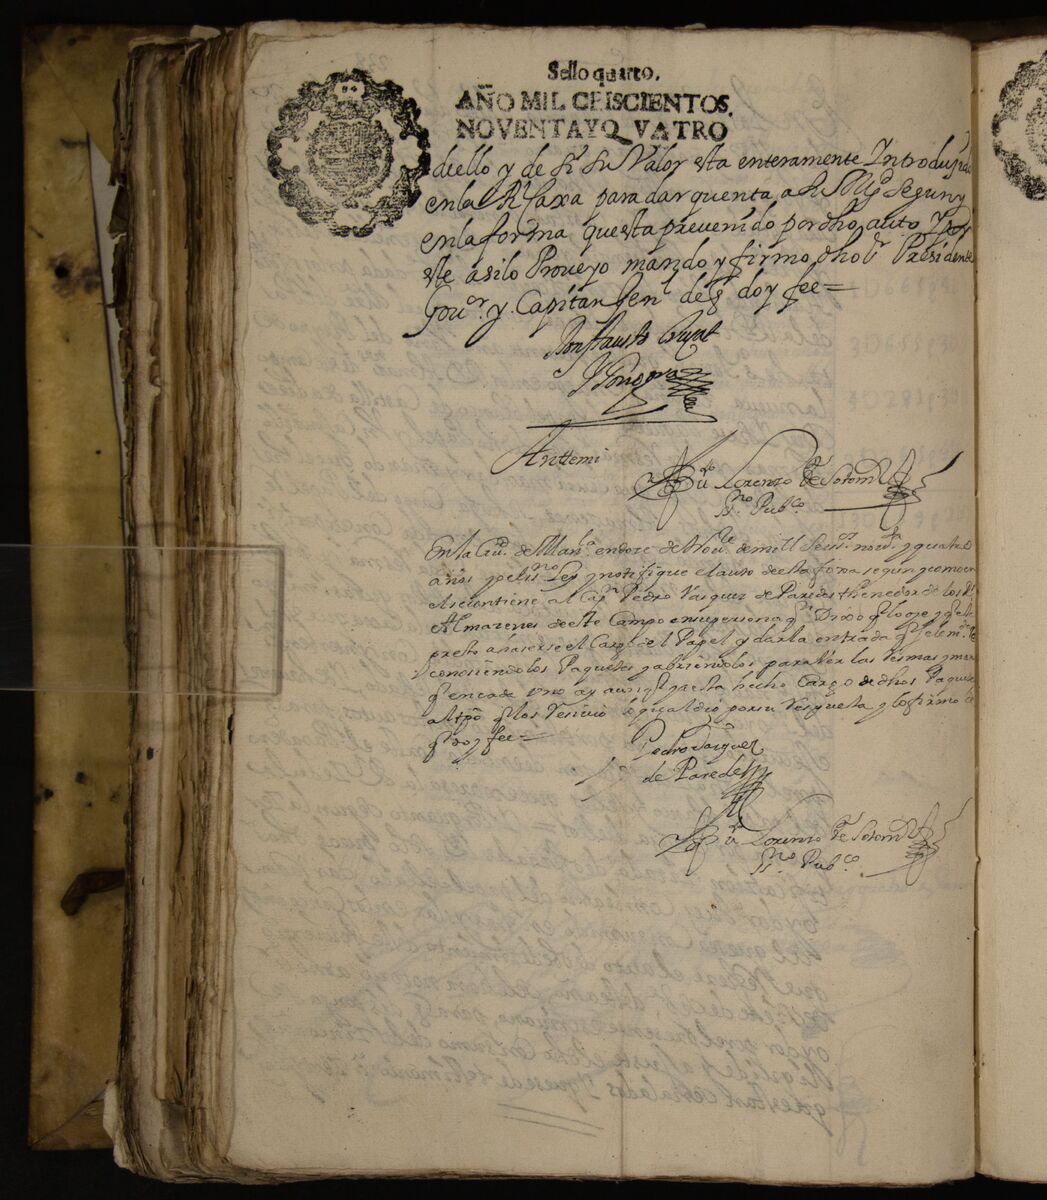 Sello quarto.
AÑO MIL CEISCIENTOS.
NOVENTAYQVATRO
dello y de su Valor esta enteramente Introdu
en la Rl Caxa para dar quenta a Su Magd Segun y
en la forma que esta prevenido por dho auto Y por
este asi lo Proveyo mando y firmo dho Sr Presidente
Govor y Capitan Genl de q doy fee=
Don Fausto Cruzat
Y Gongora
Antemi
Lorenzo de Sotomr
SSno Pubco
En la Ciud de Mana en doze de Noue de mill Seisos novta y quatro
años yo el ssno Ley y notifique el auto de esta foxa segun y como en
el se contiene al Capn Pedro Vasquez de Paredes thenedor de los Rs
Almazenes de este Campo en su persona q Dixo q lo oye y esta
presto a haserse el Cargo de el Papel y darla entrada
conosiendo los Paquetes y abriendolos para Ver las Resmas
q en cada Vno ay aunq esta hecho Cargo de dhos Paquetes
al tpo q los Resivio y esto dio por su Respuesta y lo firmo
q doy fee=
Pedro Vasquez
de Paredes
Lorenzo de Sotomr
SSno Pubco